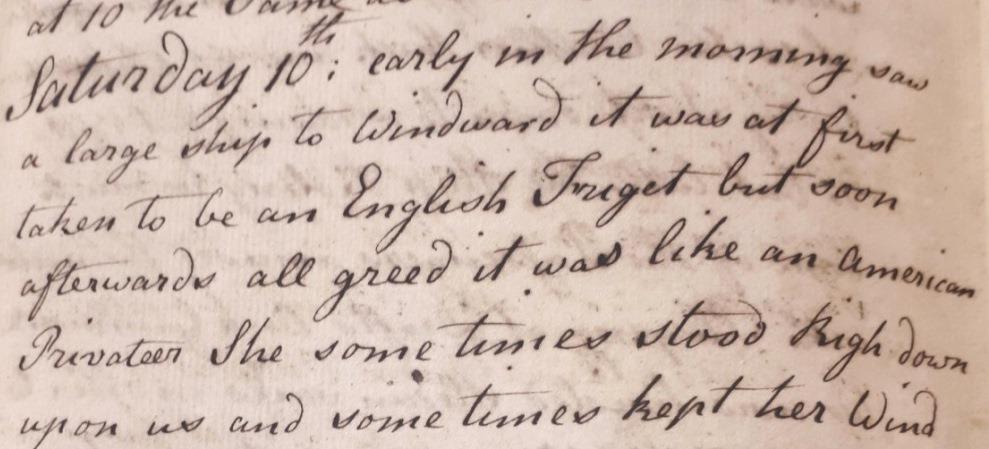 at 10 the Same
Saturday 10th: early in the morning saw
a large ship to Windward it was at first
taken to be an English Friget but soon
afterwards all greed it was like an American
Privateer She some times stood Righ down
upon us and some times kept her Wind